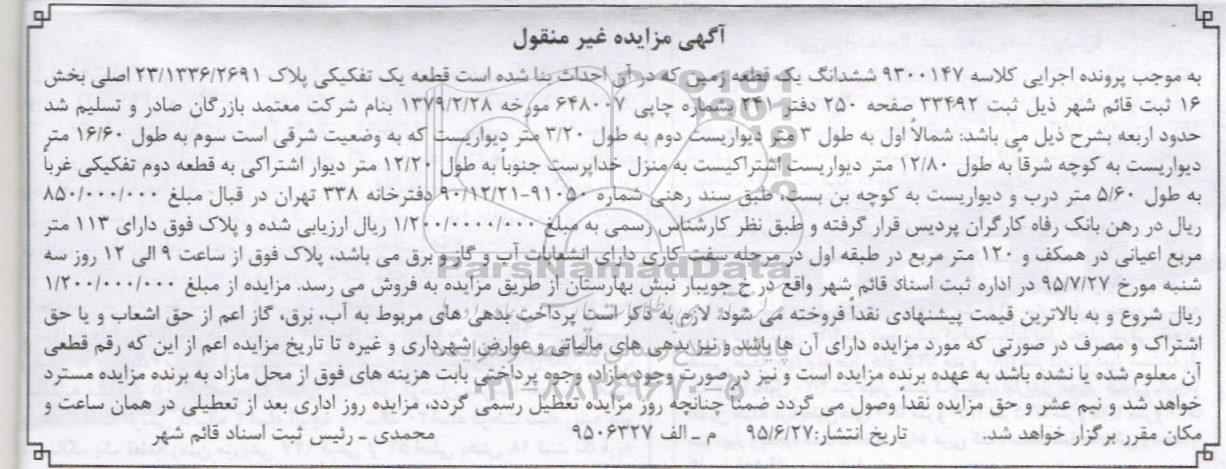 آگهی مزایده غیر منقول
به موجب پرونده اجرایی کلاسه ۹۳۰۰۱۴۷ ششدانگ یک قطعه زمین که در آن احداث بنا شده است قطعه یک تفکیکی پلاک ۲۳/۱۳۳۶/۲۶۹۱ اصلی بخش
۱۶ ثبت قائم شهر ذیل ثبت ۳۳۴۹۲ صفحه ۲۵۰ دفتر ۲۴۱ بشماره چاپی ۶۴۸۰۰۷ مورخه ۱۳۷۹/۲/۲۸ بنام شرکت معتمد بازرگان صادر و تسلیم شد
حدود اربعه بشرح ذیل می باشد: شمالاً اول به طول ۳متر دیواریست دوم به طول ۳/۲۰ متر دیواریست که به وضعیت شرقی است سوم به طول ۱۶/۶۰ متر
دیواریست به کوچه شرقاً به طول ۱۲/۸۰ متر دیواریست اشتراکیست به منزل خداپرست جنوبا به طول ۱۲/۲۰ متر دیوار اشتراکی به قطعه دوم تفکیکی غرباً
به طول ۵/۶۰ متر درب و دیواریست به کوچه بن بست، طبق سند رهنی شماره ۹۱۰۵۰-۹۰/۱۲/۲۱ دفترخانه ۳۳۸ تهران در قبال مبلغ ۸۵۰/۰۰۰/۰۰۰
ریال در رهن بانک رفاه کارگران پردیس قرار گرفته و طبق نظر کارشناس رسمی به مبلغ ۱/۲۰۰/۰۰۰۰/۰۰۰ ریال ارزیابی شده و پلاک فوق دارای ۱۱۳ متر
مربع اعیانی در همکف و ۱۲۰ متر مربع در طبقه اول در مرحله سفت کاری دارای انشعابات آب و گاز و برق می باشد، پلاک فوق از ساعت ۹ الی ۱۲ روز سه
شنبه مورخ ۹۵/۷/۲۷ در اداره ثبت اسناد قائم شهر واقع در خ جویبار نبش بهارستان از طریق مزایده به فروش می رسد. مزایده از مبلغ ۱/۲۰۰/۰۰۰/۰۰۰
ریال شروع و به بالاترین قیمت پیشنهادی نقداً فروخته می شود. لازم به ذکر است پرداخت بدهی های مربوط به آب، برق، گاز اعم از حق اشعاب و یا حق
اشتراک و مصرف در صورتی که مورد مزایده دارای آن ها باشد و نیز بدهی های مالیاتی و عوارض شهرداری و غیره تا تاریخ مزایده اعم از این که رقم قطعی
آن معلوم شده یا نشده باشد به عهده برنده مزایده است و نیز در صورت وجود مازاد، وجوه پرداختی بابت هزینه های فوق از محل مازاد به برنده مزایده مسترد
خواهد شد و نیم عشر و حق مزایده نقداً وصول می گردد ضمناً چنانچه روز مزایده تعطیل رسمی گردد، مزایده روز اداری بعد از تعطیلی در همان ساعت و
مکان مقرر برگزار خواهد شد. تاریخ انتشار:۹۵/۶/۲۷ م_ الف ۹۵۰۶۳۲۷ محمدی _ رئیس ثبت اسناد قائم شهر
ParsNamadData
۰۲۱-۸۸۳۴۹۶۷۰-۵